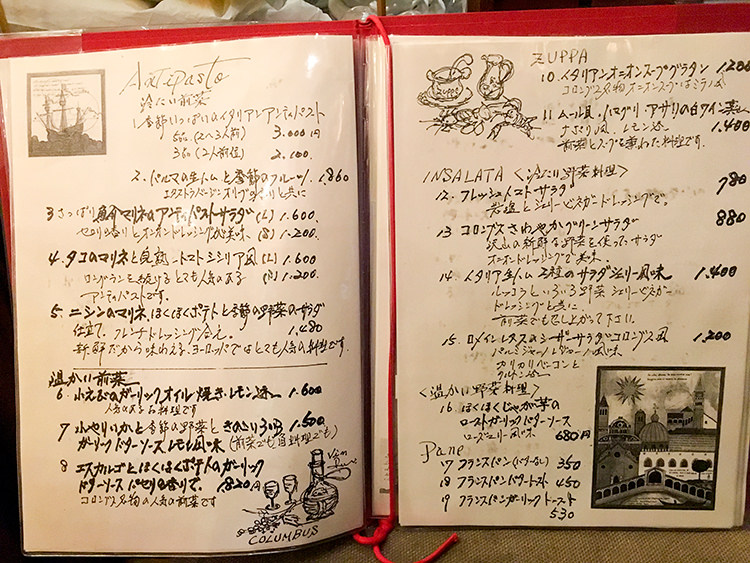 Antipasto
冷たい前菜
1 季節いっぱいのイタリアンアンティパスト
5品(2~3人前) 3.000円
3品(2人前位) 2.100.
2. パルマの生ハムと季節のフルーツ. 1.860
エクストラバージンオリーブの香りと共に
3 さっぱり魚介マリネのアンティパストサラダ(L) 1.600.
セロリの香りとオニオンドレッシングが美味 (S) 1.200.
4. タコのマリネと完熟トマトシシリア風(L) 1.600
ロングランを続けるとても人気のある 1.200.
アンティパストです.
5. ニシンのマリネ.ほくほくポテトと季節の野菜のサラダ
仕立て. フレンチドレッシング合え. 1.480
新鮮だから味わえる.ヨーロッパではとても人気の料理です.
温かい前菜
6. 小えびのガーリックオイル焼き.レモン添え 1.600
人気のあるお料理です
7 小やりいかと季節の野菜ときのこソテー 1.500
ガーリックバターソースレモン風味 (前菜でも魚料理でも)
8 エスカルゴとほくほくポテトのガーリック
バターソース パセリの香りで. 1.820円
コロンブス名物の人気の前菜です
Vin
COLUMBUS
ZUPPA
10. イタリアンオニオンスープグラタン 1.200
コロンブス名物オニオンスープ
11 ムール貝.ハマグリ.アサリの白ワイン蒸し
ナポリ風. レモン添え 1.400
前菜とスープを兼ねた料理です.
INSALATA <冷たい野菜料理>
12. フレッシュトマトサラダ 780
岩塩とシェリービネガードレッシングで.
13 コロンブスさわやかグリーンサラダ 880
沢山の新鮮な野菜を使ったサラダ
オニオンドレッシングで美味.
14. イタリア生ハム 2種のサラダシェリー風味 1.400
ルッコラといろいろ野菜 シェリービネガー
ドレッシングと共に
前菜でも召し上がって下さい.
15. ロメインレタスのシーザーサラダコロンブス風 1.200
パルミジャーノレジャーノ風味
カリカリベーコンと
クルトン添え
<温かい野菜料理>
16 ほくほくじゃが芋の
ローストガーリックバターソース
ローズマリー風味 680円
Pane
17 フランスパン(バターなし) 350
18 フランスパンバタートースト 450
19 フランスパンガーリックトースト
530